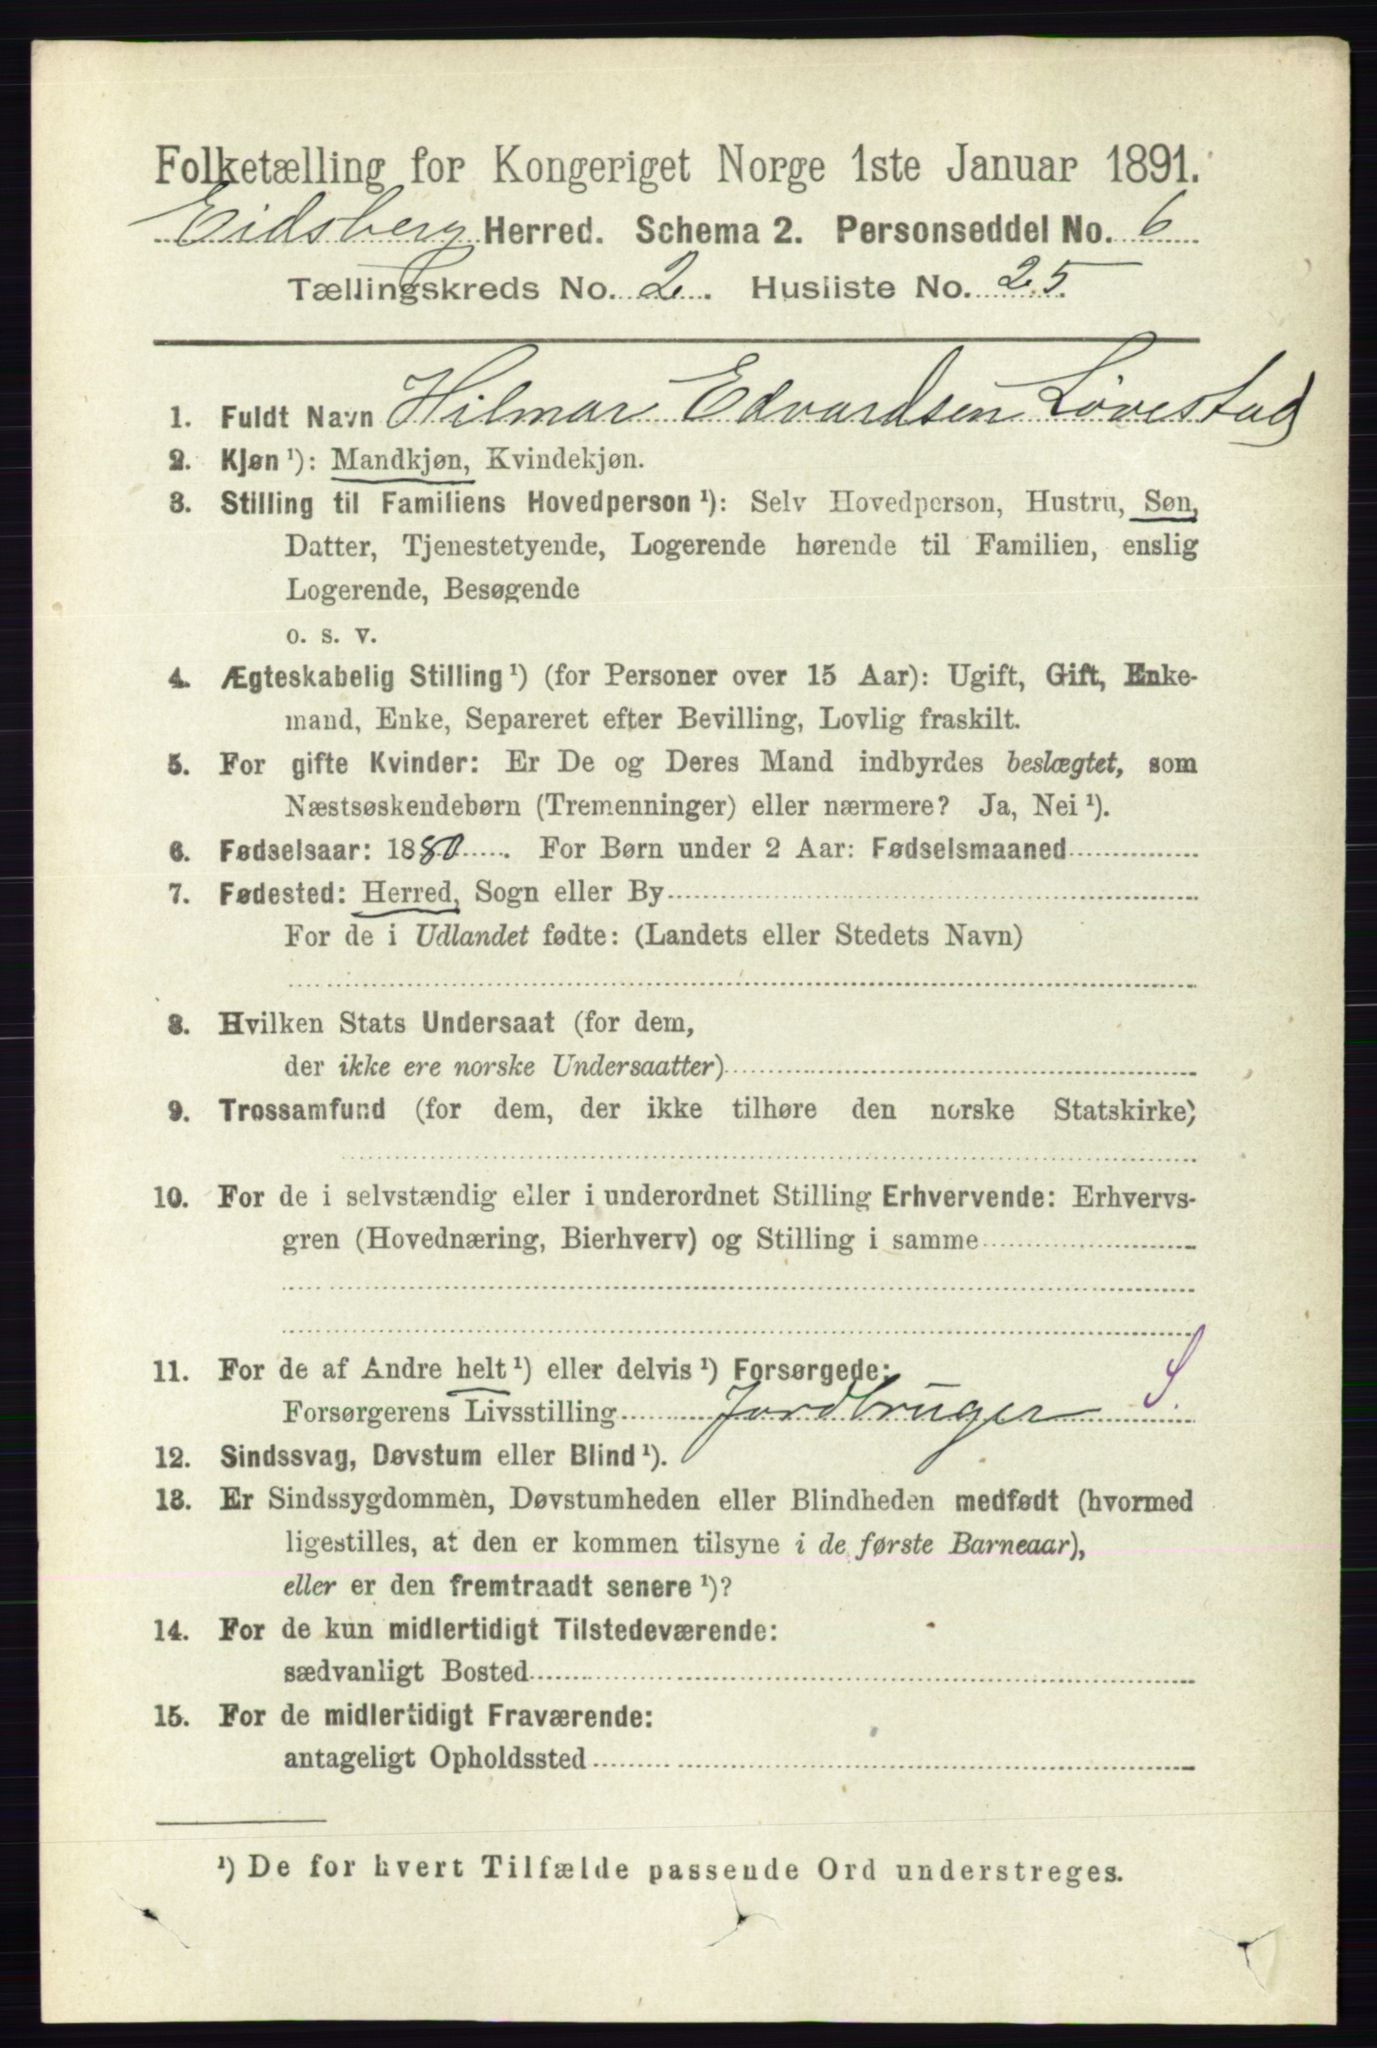 Folketælling for Kongeriget Norge 1ste Januar 1891.
Eidsberg Herred. Schema 2. Personseddel No. 6
Tællingskreds No. 2. Husliste No. 25.
1. Fuldt Navn Hilmar Edvardsen Løvestad
2. Kjøn ¹): Mandkjøn, Kvindekjøn.
3. Stilling til Familiens Hovedperson ¹): Selv Hovedperson, Hustru, Søn,
Datter, Tjenestetyende, Logerende hørende til Familien, enslig
Logerende, Besøgende
o. s. v.
4. Ægteskabelig Stilling ¹) (for Personer over 15 Aar): Ugift, Gift, Enke-
mand, Enke, Separeret efter Bevilling, Lovlig fraskilt.
5. For gifte Kvinder: Er De og Deres Mand indbyrdes beslægtet, som
Næstsøskendebørn (Tremenninger) eller nærmere? Ja, Nei ¹).
6. Fødselsaar: 1880. For Børn under 2 Aar: Fødselsmaaned
7. Fødested: Herred, Sogn eller By
For de i Udlandet fødte: (Landets eller Stedets Navn)
8. Hvilken Stats Undersaat (for dem,
der ikke ere norske Undersaatter)
9. Trossamfund (for dem, der ikke tilhøre den norske Statskirke)
10. For de i selvstændig eller i underordnet Stilling Erhvervende: Erhvervs-
gren (Hovednæring, Bierhverv) og Stilling i samme
11. For de af Andre helt ¹) eller delvis ¹) Forsørgede:
Forsørgerens Livsstilling Jordbruger S.
12. Sindssvag, Døvstum eller Blind ¹).
13. Er Sindssygdommen, Døvstumheden eller Blindheden medfødt (hvormed
ligestilles, at den er kommen tilsyne i de første Barneaar),
eller er den fremtraadt senere ¹)?
14. For de kun midlertidigt Tilstedeværende:
sædvanligt Bosted
15. For de midlertidigt Fraværende:
antageligt Opholdssted
¹) De for hvert Tilfælde passende Ord understreges.